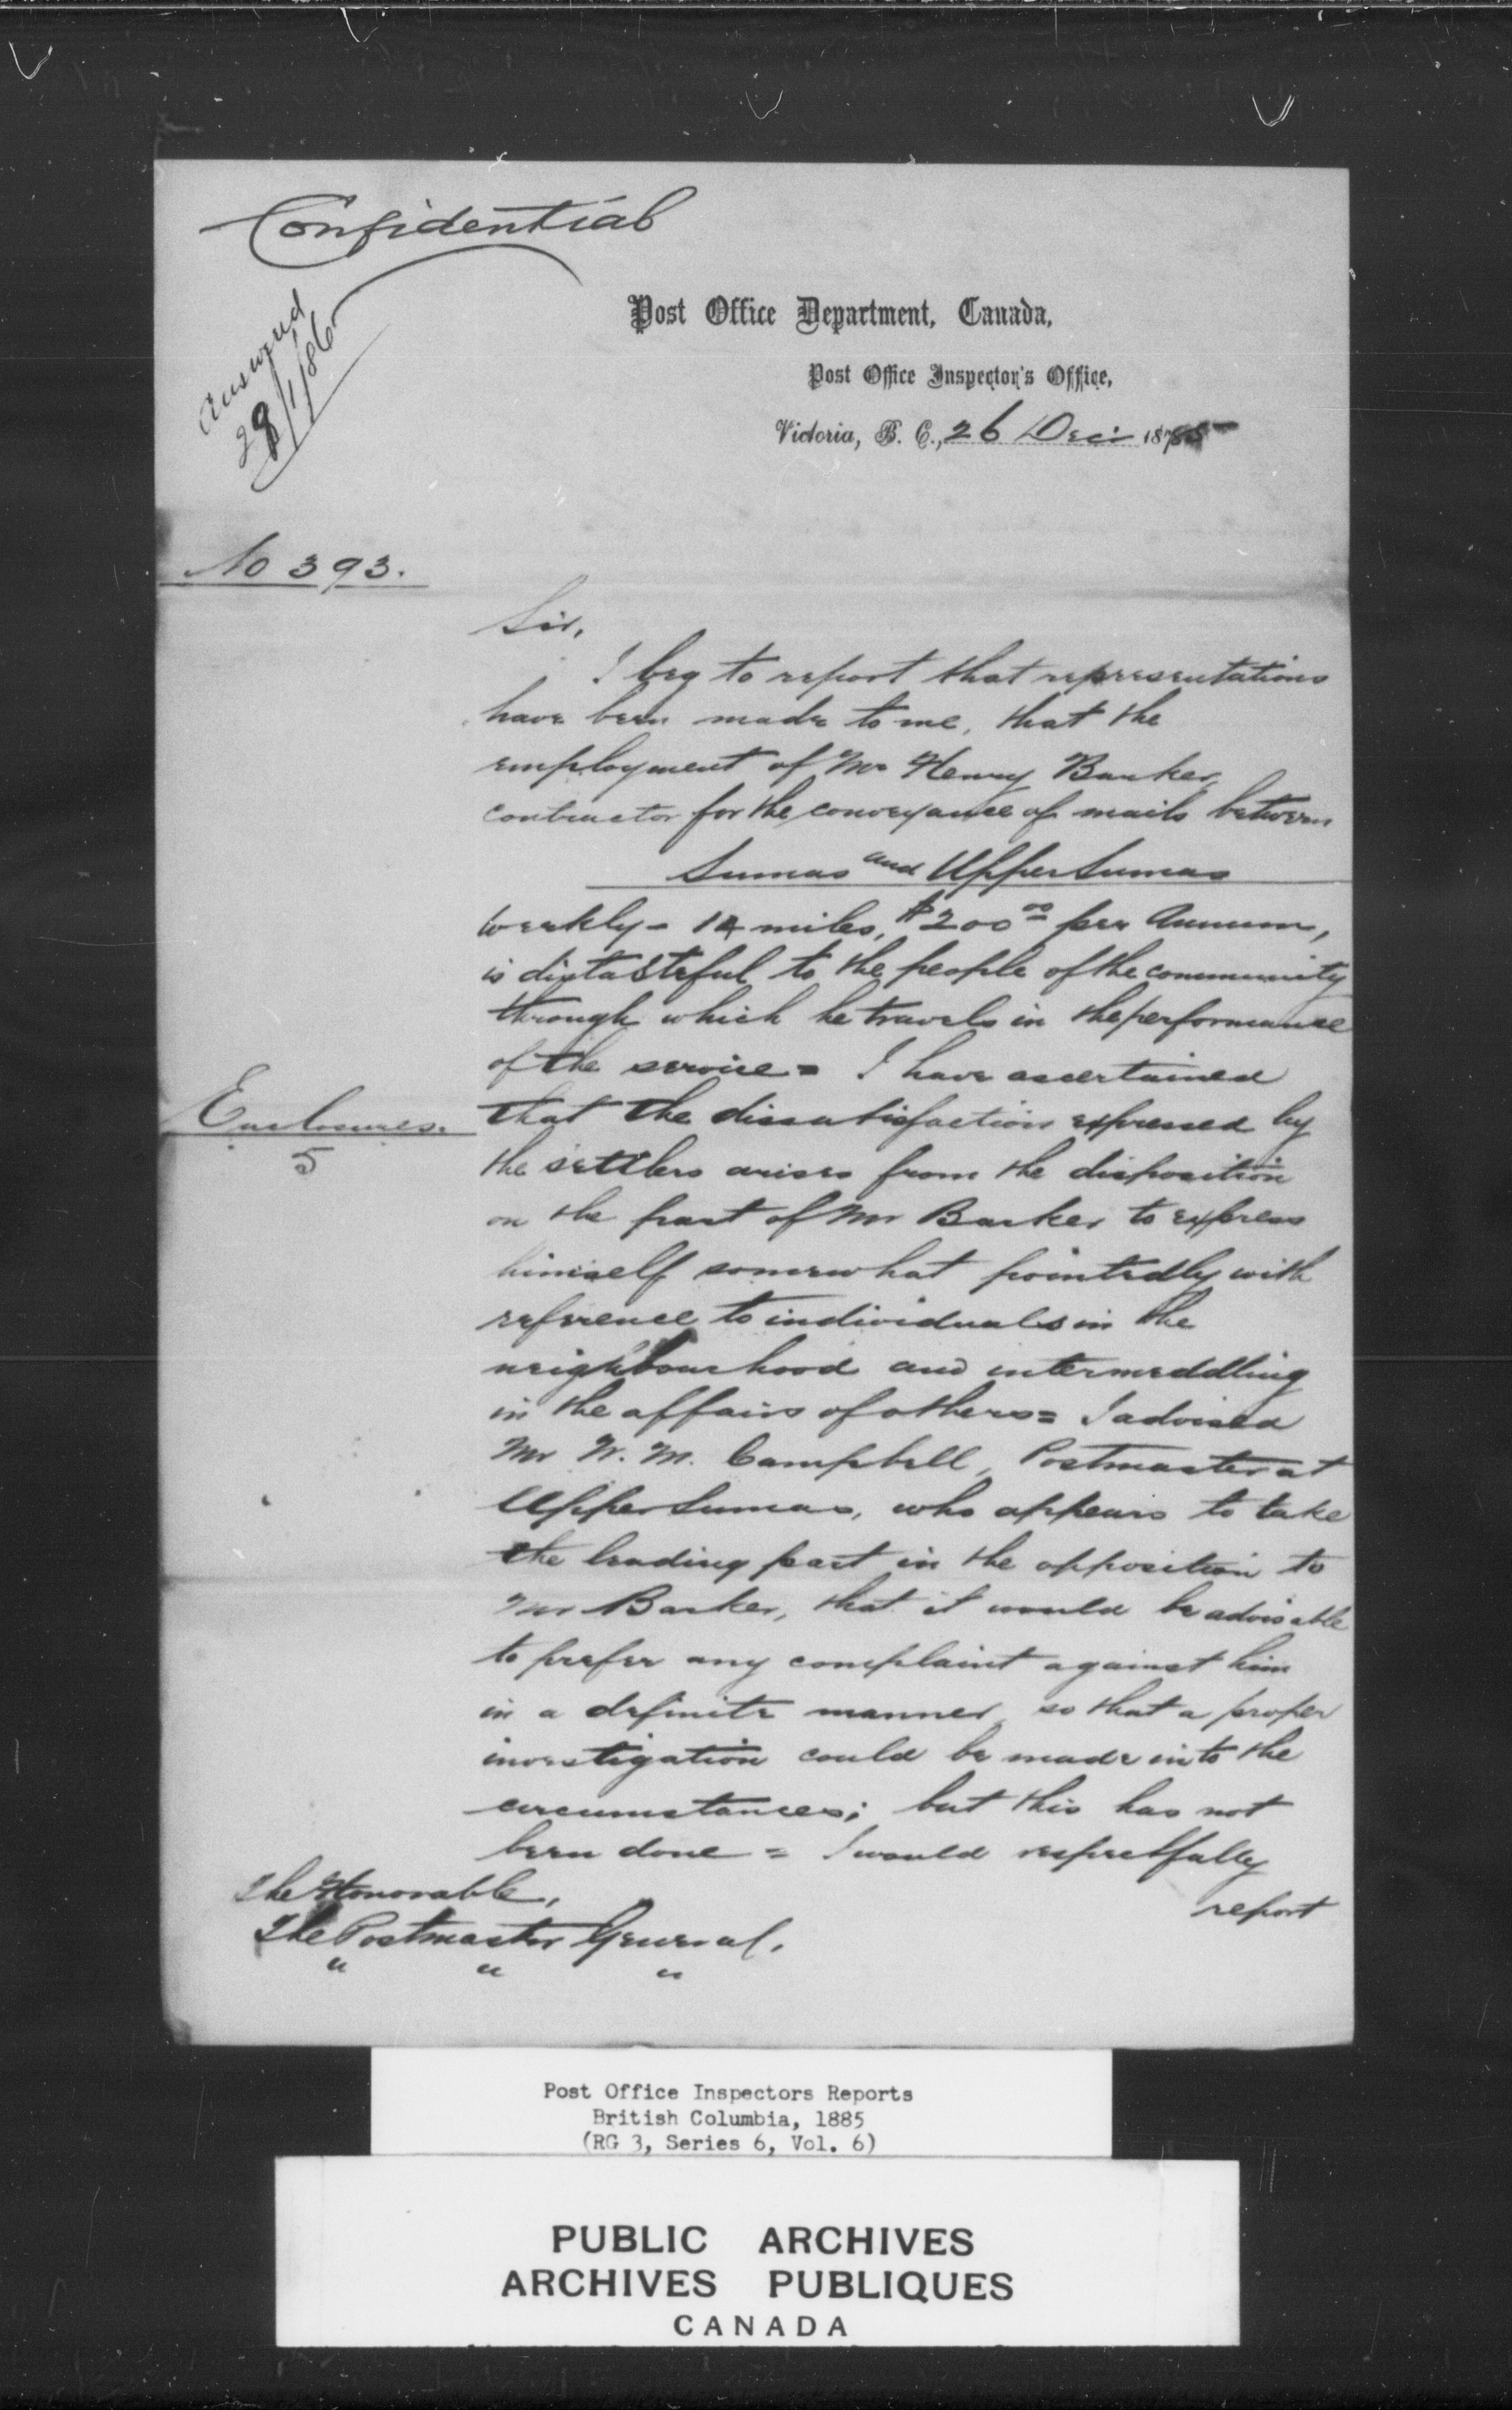 Confidential
Answered
28/1/86
Post Office Department, Canada,
Post Office Inspector's Office,
Victoria, B. C., 26 Decr 1885
No 393.
Sir,
I beg to report that representations
have been made to me, that the
employment of Mr Henry Barker,
contractor for the conveyance of mails between
Sumas and Upper Sumas
weekly - 14 miles, $200.00 per Annum,
is distasteful to the people of the community
through which he travels in the performance
of the service = I have ascertained
Enclosures.
5
that the dissatisfaction expressed by
the settlers arises from the disposition
on the part of Mr Barker to express
himself somewhat pointedly with
reference to individuals in the
neighbourhood and intermeddling
in the affairs of others = I advised
Mr W. M. Campbell, Postmaster at
Upper Sumas, who appears to take
the leading part in the opposition to
Mr Barker, that it would be advisable
to prefer any complaint against him
in a definite manner so that a proper
investigation could be made into the
circumstances; but this has not
been done = I would respectfully
report
The Honorable,
The Postmaster General.
" " "
Post Office Inspectors Reports
British Columbia, 1885
(RG 3, Series 6, Vol. 6)
PUBLIC ARCHIVES
ARCHIVES PUBLIQUES
CANADA